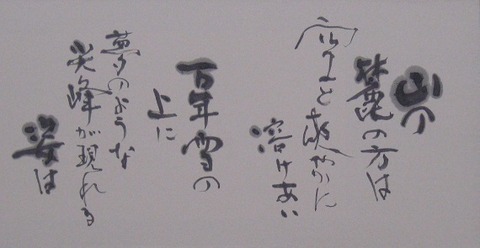 山の
麓の方は
空と爽やかに
溶けあい
百年雪の
上に
夢のような
尖峰が現れる
姿は